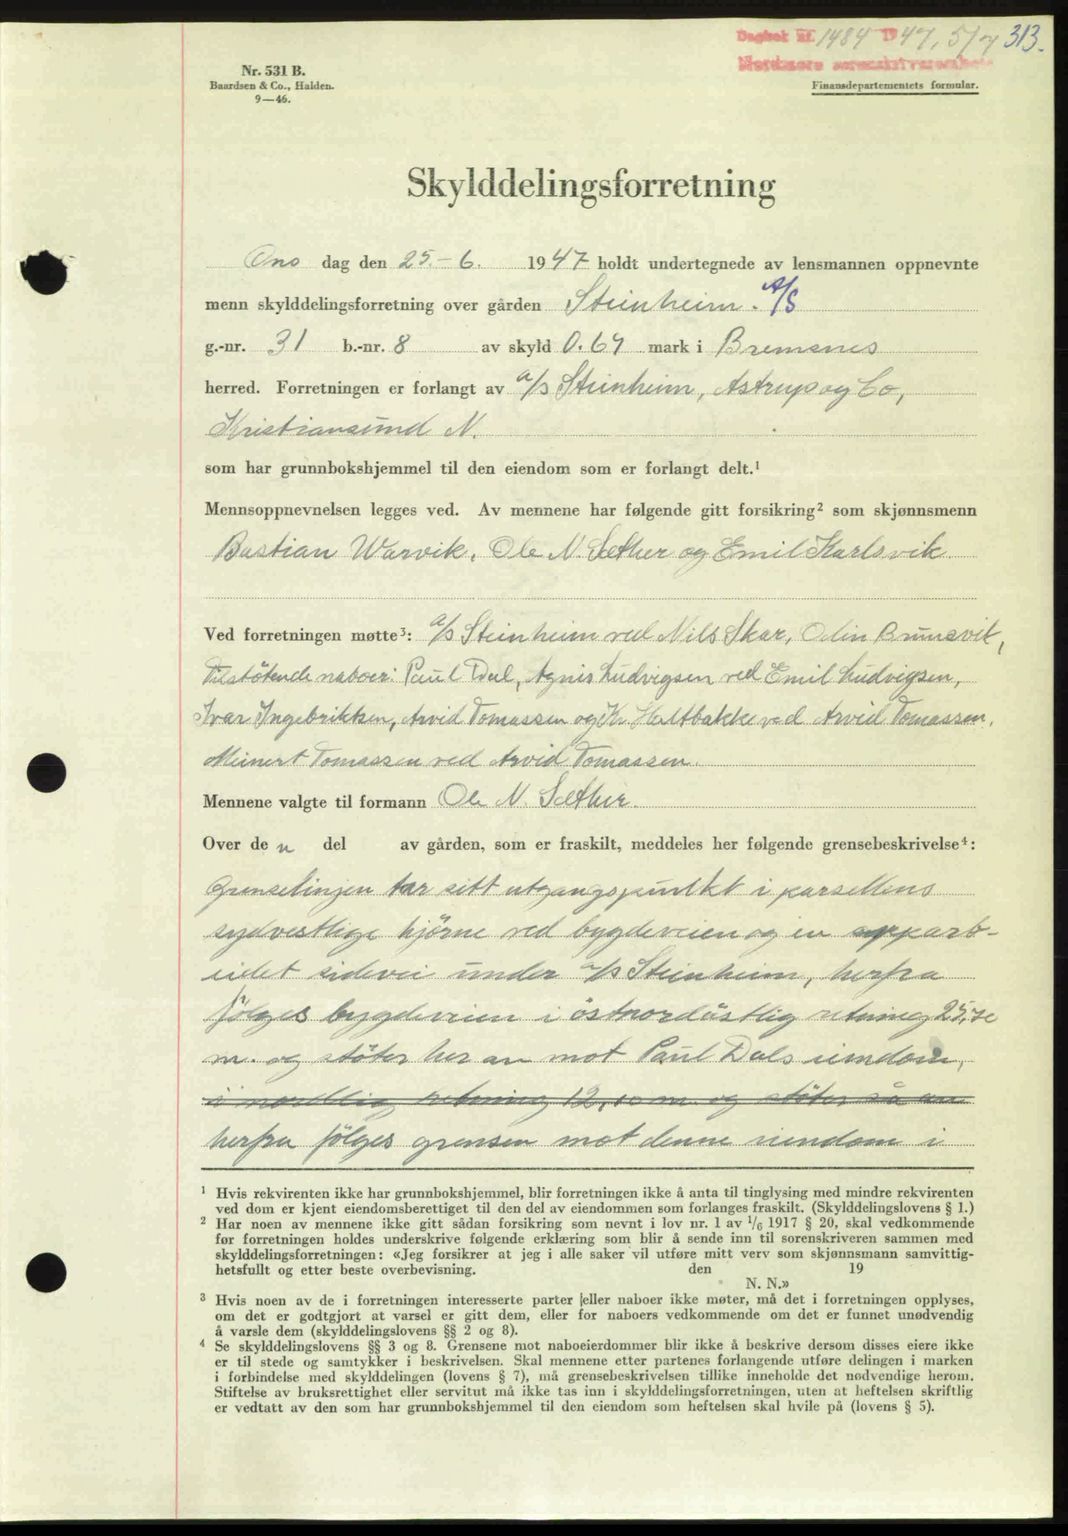 Dagbok nr. 1484 1947, 5/7 313.
Nordmøre sorenskriverembete
Nr. 531 B.
Baardsen & Co., Halden.
9—46.
Finansdepartementets formular.
Skylddelingsforretning
Ons dag den 25.-6. 1947 holdt undertegnede av lensmannen oppnevnte
menn skylddelingsforretning over gården Steinheim. A/S
g.-nr. 31 b.-nr. 8 av skyld 0.67 mark i Bremsnes
herred. Forretningen er forlangt av a/s Steinheim, Astrup og Co,
Kristiansund N.
som har grunnbokshjemmel til den eiendom som er forlangt delt.¹
Mennsoppnevnelsen legges ved. Av mennene har følgende gitt forsikring² som skjønnsmenn
Bastian Warvik, Ole N. Sæther og Emil Karlsvik
Ved forretningen møtte³: a/s Steinheim ved Nils Skar, Odin Brunsvik,
tilstötende naboer: Paul Dal, Agnis Ludvigsen ved Emil Ludvigsen,
Ivar Ingebriktsen, Arvid Tomassen og Kr. Holtbakke ved Arvid Tomassen,
Meinert Tomassen ved Arvid Tomassen.
Mennene valgte til formann Ole N. Sæther.
Over den del av gården, som er fraskilt, meddeles her følgende grensebeskrivelse⁴:
Grenselinjen tar sitt utgangspunkt i parsellens
sydvestlige hjörne ved bygdeveien og en opparb-
eidet sidevei under a/s Steinheim, herfra
fölges bygdeveien i östnordöstlig retning 25,70
m. og stöter her an mot Paul Dals eiendom,
i nordlig retning 12,10 m. og stöter så an
herfra fölges grensen mot denne eiendom i
¹ Hvis rekvirenten ikke har grunnbokshjemmel, blir forretningen ikke å anta til tinglysing med mindre rekvirenten
ved dom er kjent eiendomsberettiget til den del av eiendommen som forlanges fraskilt. (Skylddelingslovens § 1.)
² Har noen av mennene ikke gitt sådan forsikring som nevnt i lov nr. 1 av 1/6 1917 § 20, skal vedkommende
før forretningen holdes underskrive følgende erklæring som blir å sende inn til sorenskriveren sammen med
skylddelingsforretningen: «Jeg forsikrer at jeg i alle saker vil utføre mitt verv som skjønnsmann samvittig-
hetsfullt og etter beste overbevisning. den 19
N. N.»
³ Hvis noen av de i forretningen interesserte parter eller naboer ikke møter, må det i forretningen opplyses,
om det er godtgjort at varsel er gitt dem, eller for naboers vedkommende om det er funnet unødvendig
å varsle dem (skylddelingslovens §§ 2 og 8).
⁴ Se skylddelingslovens §§ 3 og 8. Grensene mot naboeierdommer blir ikke å beskrive dersom disses eiere ikke
er til stede og samtykker i beskrivelsen. Skal mennene etter partenes forlangende utføre delingen i marken
i forbindelse med skylddelingen (lovens § 7), må grensebeskrivelsen tillike inneholde det nødvendige herom.
Stiftelse av bruksrettighet eller servitut må ikke tas inn i skylddelingsforretningen, uten at heftelsen skriftlig
er vedtatt av den som har grunnbokshjemmel til den eiendom som heftelsen skal hvile på (lovens § 5).